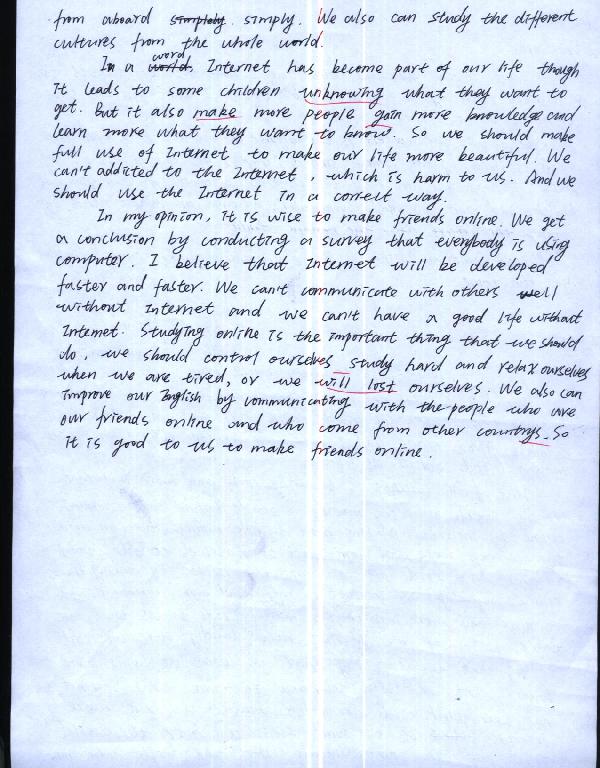 from aboard simplely. simply. We also can study the different
cultures from the whole world.
In a world. word Internet has become part of our life though
it leads to some children unknowing what they want to
get. But it also make more people gain more knowledge and
learn more what they want to know. So we should make
full use of Internet to make our life more beautiful. We
can't addicted to the Internet, which is harm to us. And we
should use the Internet in a correct way.
In my opinion, it is wise to make friends online. We get
a conclusion by conducting a survey that everybody is using
computer. I believe that Internet will be developed
faster and faster. We can't communicate with others well
without Internet and we can't have a good life without
Internet. Studying online is the important thing that we should
do, we should control ourselves study hard and relax ourselves
when we are tired, or we will lost ourselves. We also can
improve our English by communicating with the people who are
our friends online and who come from other countrys. So
it is good to us to make friends online.